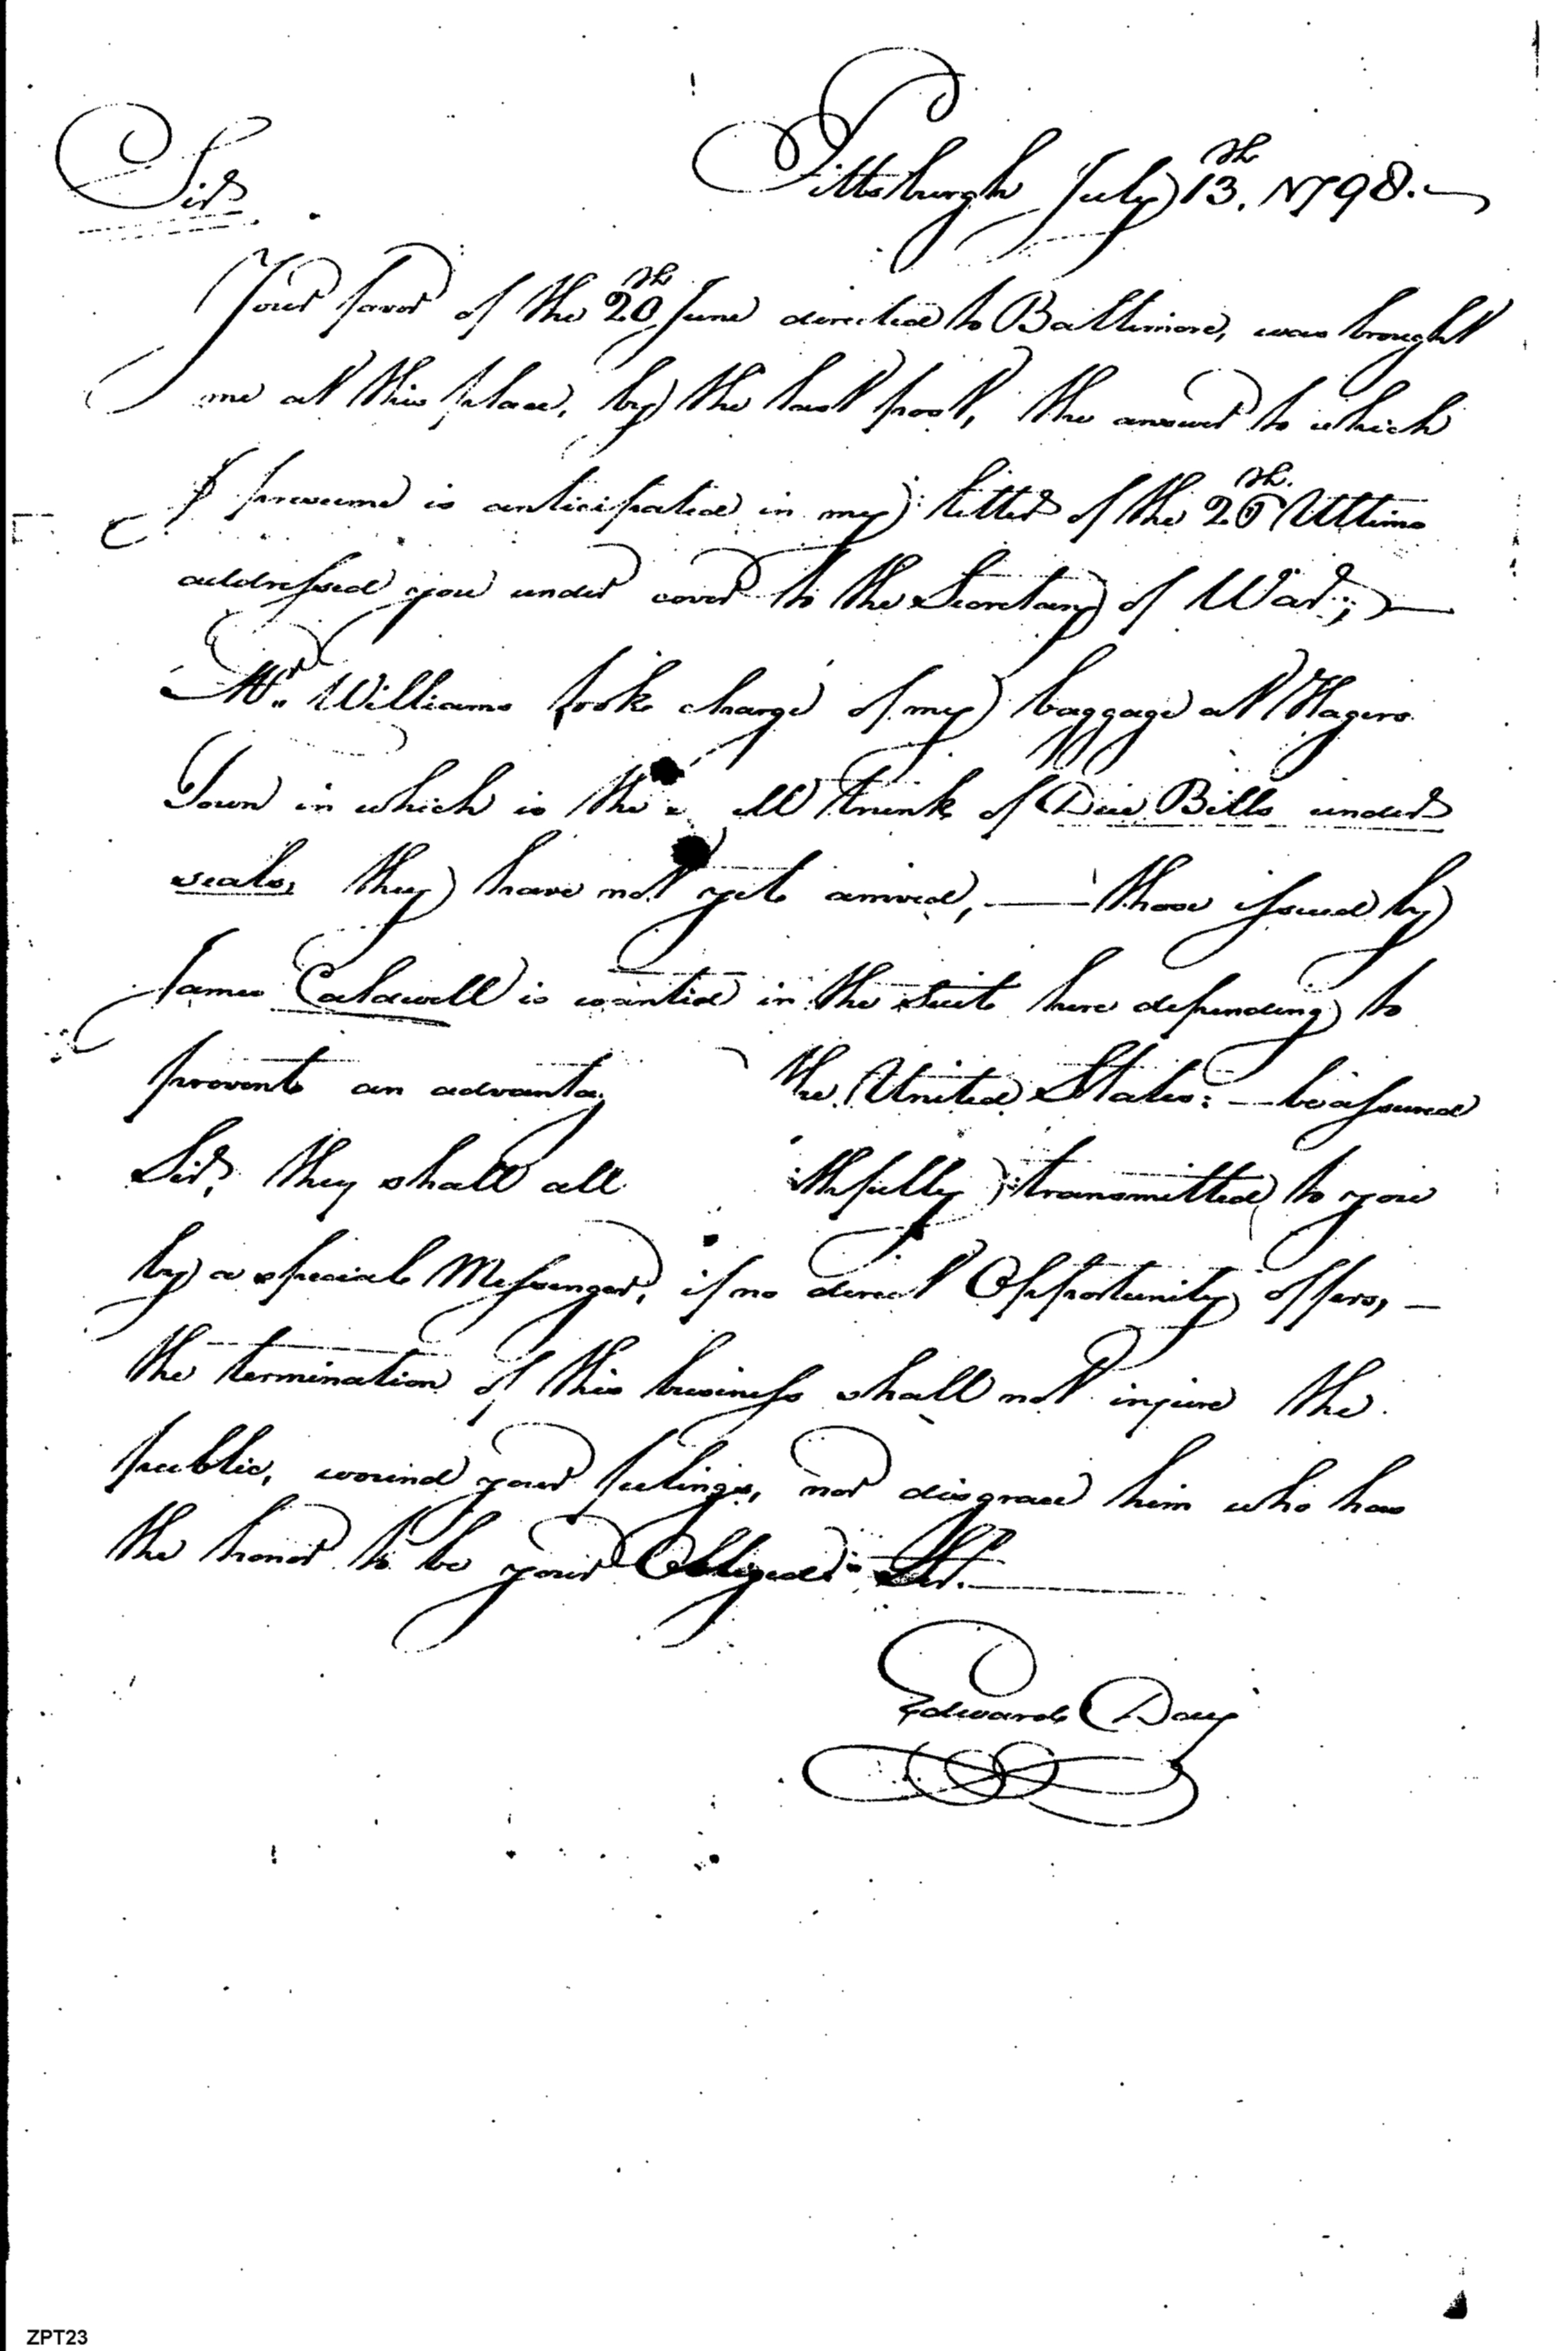 Pittsburgh July 13.th 1798.
Sir
Your favor of the 20th June directed to Baltimore, was brought
me at this place, by the last post, the answer to which
I presume is anticipated in my letter of the Ultimo
addressed you under cover to the Secretary of War; —
Mr. Williams took charge of my baggage at Hagers
Town in which is the all trunk of Due Bills under
seals, they have not yet arrived, — those issued by
James Caldwell is wanted in the suit here depending to
prevent an advanta the United States: — be assured
Sir, they shall all thfully transmitted to you
by a special Messenger, if no direct Opportunity offers, —
the termination of this business shall not injure the
public, wound your feelings, nor disgrace him who has
the honor to be your Obliged St.
Edward Day
ZPT23